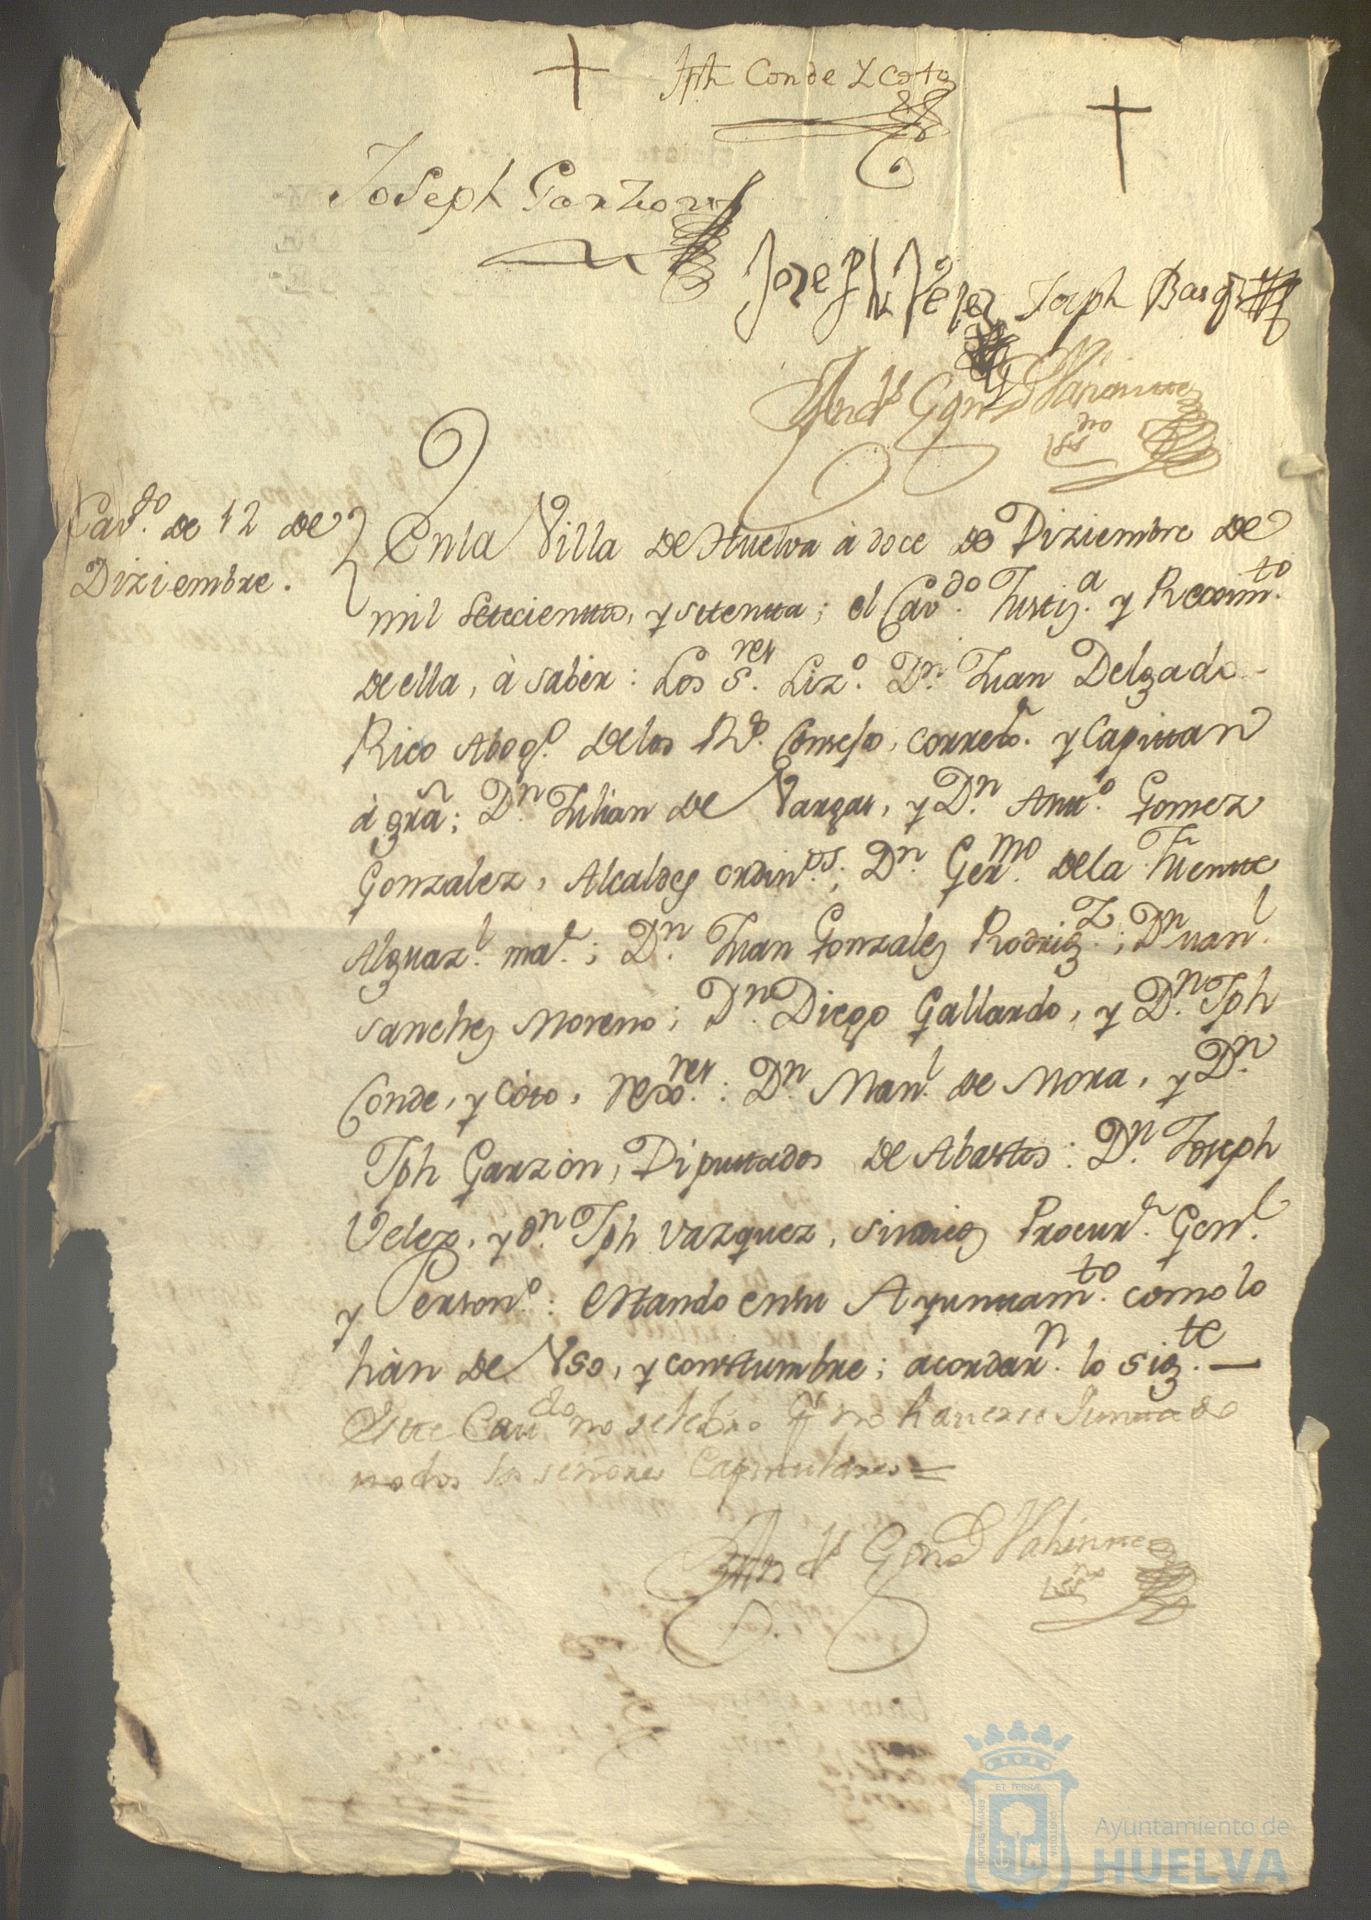 Jph Conde Y Coto
Joseph Garzon
Joseph Velez Joseph Basqz
Andrs Gonz Valiente
Esno
Cavdo. de 12 de
Diziembre.
En la Villa de Huelva à doce de Diziembre de
mil Setecientos, y setenta; el Cavdo. Justiza. y Reximto.
de ella, à saber: Los Sres. Lizo. Dn. Juan Delgado
Rico Abogo. de los Rs. Consejos, correxr. y Capitan
à gra; Dn. Julian de Vargas, y Dn. Anto. Gomez
Gonzalez, Alcaldes ordinos.; Dn. Germo. de la Fuente
Alguazl. mar.; Dn. Juan Gonzalez Rodrigz.; Dn. Manl.
Sanchez Moreno; Dn. Diego Gallardo, y Dn. Jph
Conde, y Coto, rexores.: Dn. Manl. de Mora, y Dn.
Jph Garzon, Diputados de Abastos: Dn. Joseph
Velez, y Dn. Jph Vazquez, Sindicos Procurr. Genl.
y Persono.: estando en su Ayuntamto. como lo
hàn de Uso, y constumbre; acordarn. lo sigte.
Este Cavdo no se lebro pr no haverse Juntado
todos los señores Capitulares =
Andrs Gonz Valiente
Esno
Ayuntamiento de
HUELVA